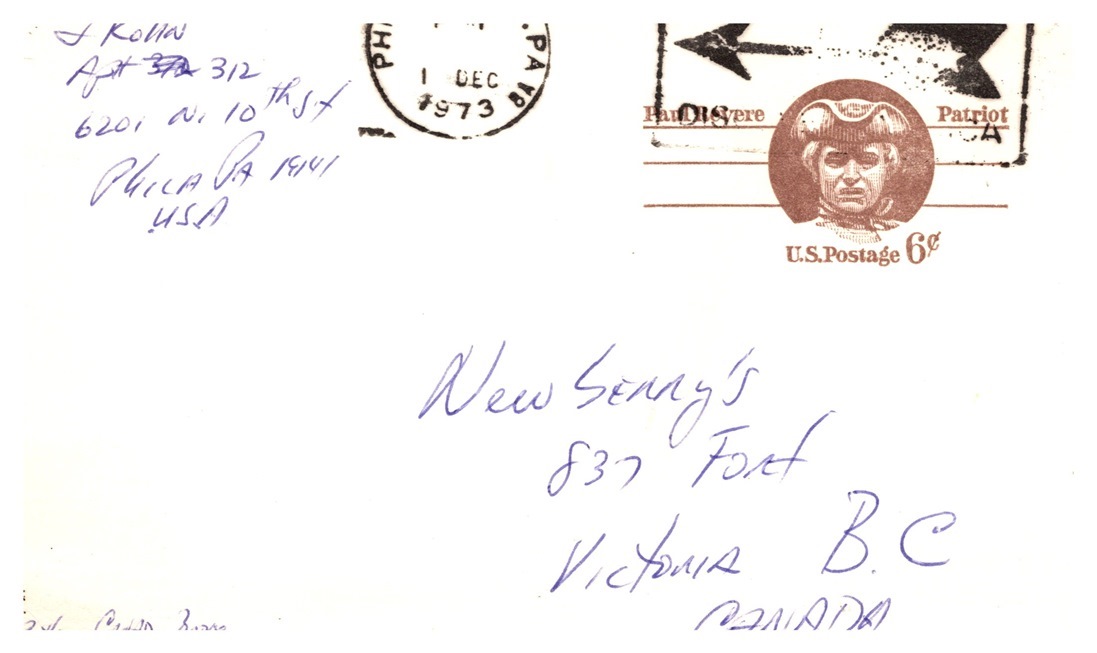 J Kohn
Apt 312
6201 N. 10th St
Phila Pa 19141
USA
PHI PA
1 DEC
1973
Paul Revere Patriot
U.S. Postage 6¢
Newberry's
837 Fort
Victoria B.C
CANADA